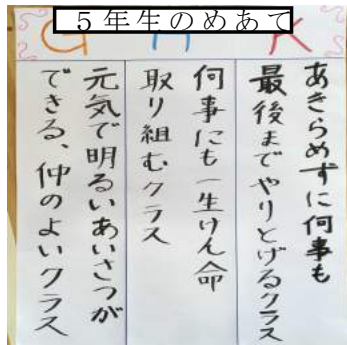 5年生のめあて
G K
あきらめずに何事も
最後までやりとげるクラス
何事にも一生けん命
取り組むクラス
元気で明るいあいさつが
できる、仲のよいクラス